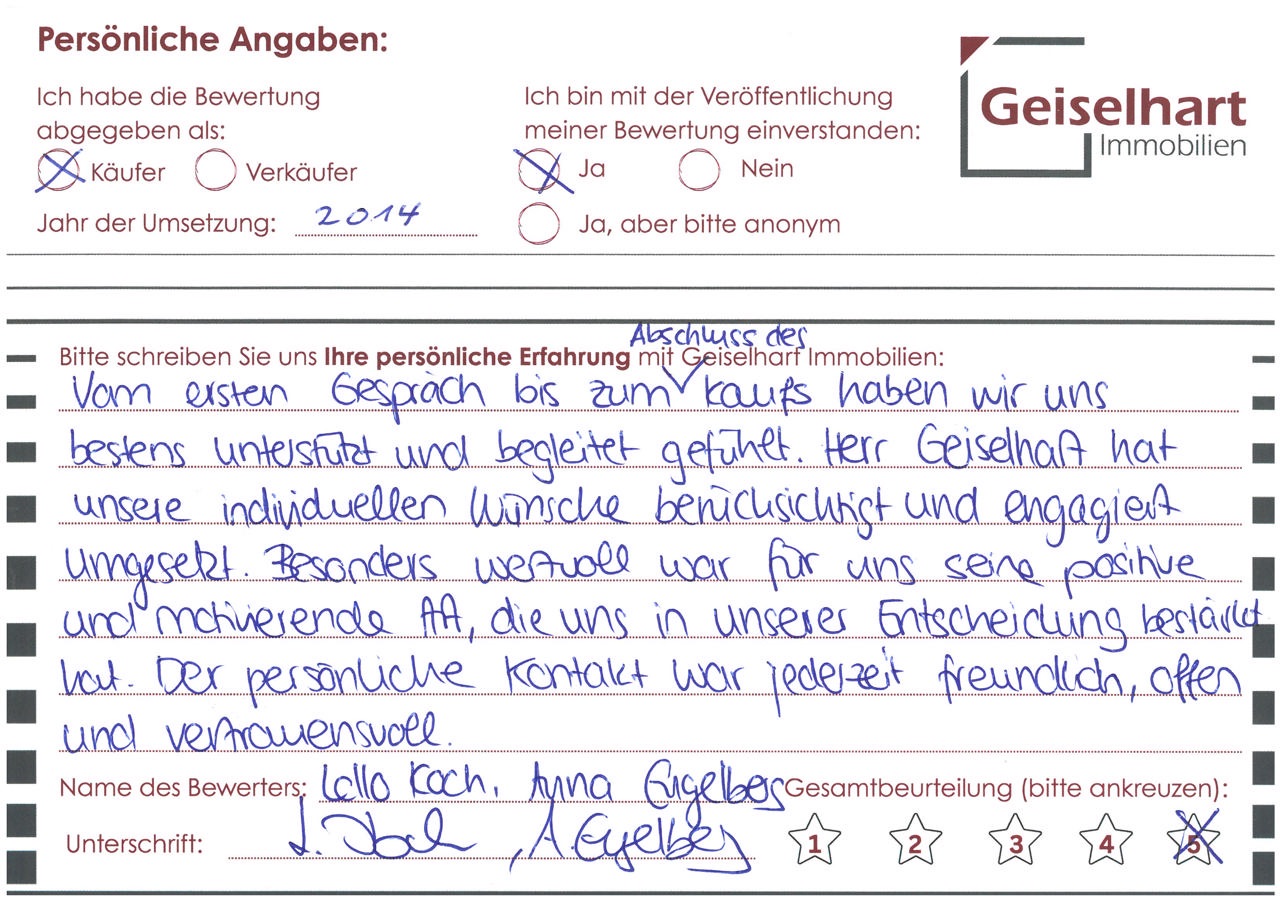 Persönliche Angaben:
Geiselhart
Immobilien
Ich habe die Bewertung
abgegeben als:
Käufer Verkäufer
Jahr der Umsetzung: 2014
Ich bin mit der Veröffentlichung
meiner Bewertung einverstanden:
Ja Nein
Ja, aber bitte anonym
Bitte schreiben Sie uns Ihre persönliche Erfahrung mit Geiselhart Immobilien:
Abschluss des
Vom ersten Gespräch bis zum Kaufs haben wir uns
bestens unterstützt und begleitet gefühlt. Herr Geiselhart hat
unsere individuellen Wünsche berücksichtigt und engagiert
umgesetzt. Besonders wertvoll war für uns seine positive
und motivierende Art, die uns in unserer Entscheidung bestärkt
hat. Der persönliche Kontakt war jederzeit freundlich, offen
und vertrauensvoll.
Name des Bewerters: Koch, Anna Engelberg
Gesamtbeurteilung (bitte ankreuzen):
Unterschrift: A. Engelberg
1 2 3 4 5